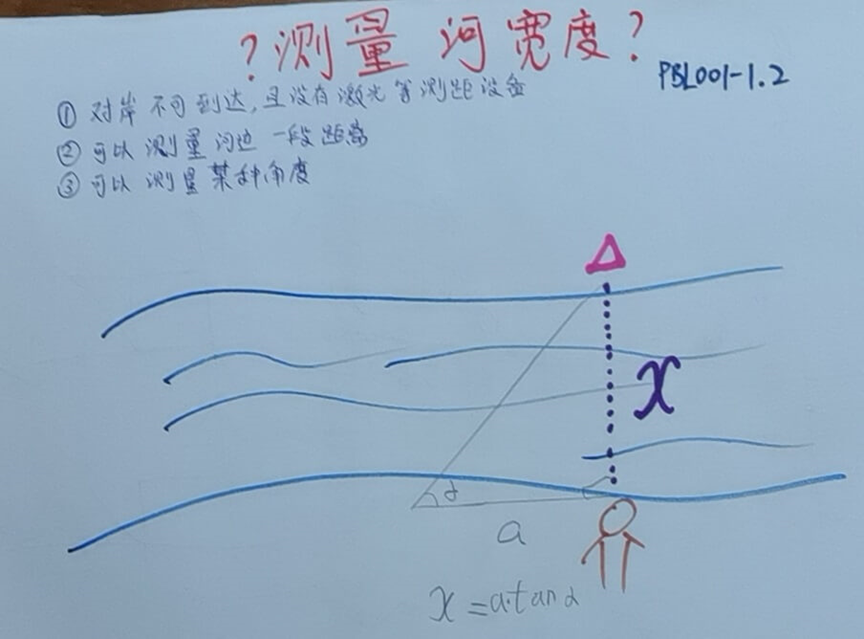 ？测量 河宽度？
PBL001-1.2
① 对岸不可到达，且没有激光等测距设备
② 可以测量河边一段距离
③ 可以测量某种角度
Δ
x
α
a
x = a·tanα